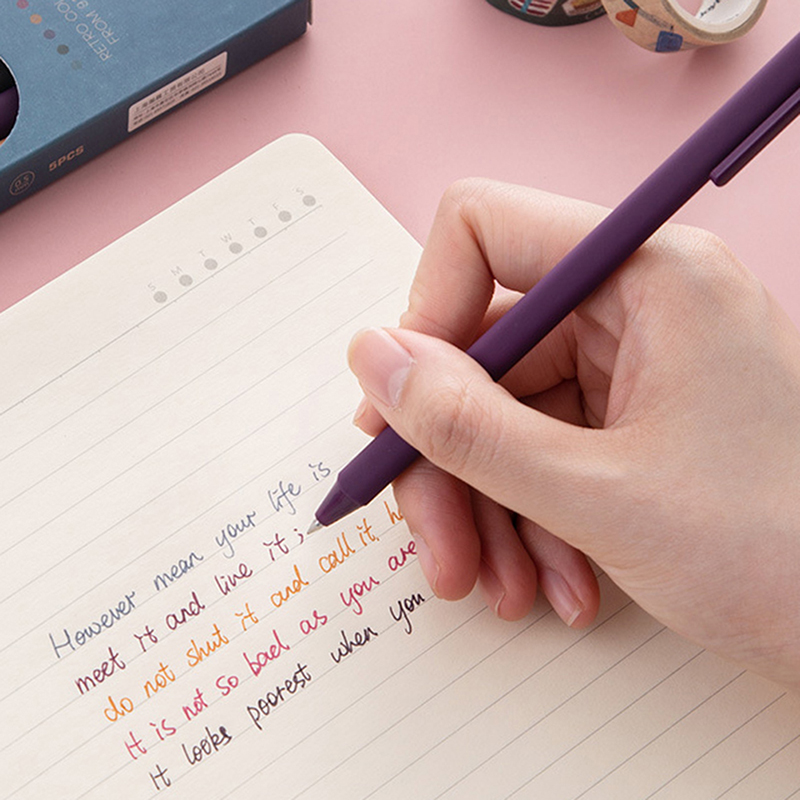 RETRO CO
FROM 9
5PCS
0.5
S M T W T F S
However mean your life is
meet it and live it;
do not shut it and call it h
It is not so bad as you are
It looks poorest when you